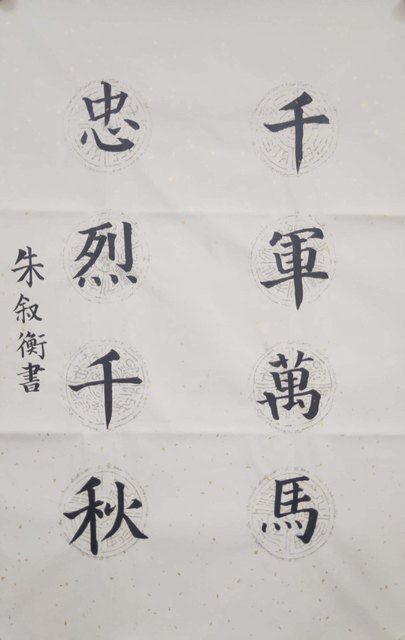 千軍萬馬
忠烈千秋
朱叙衡書